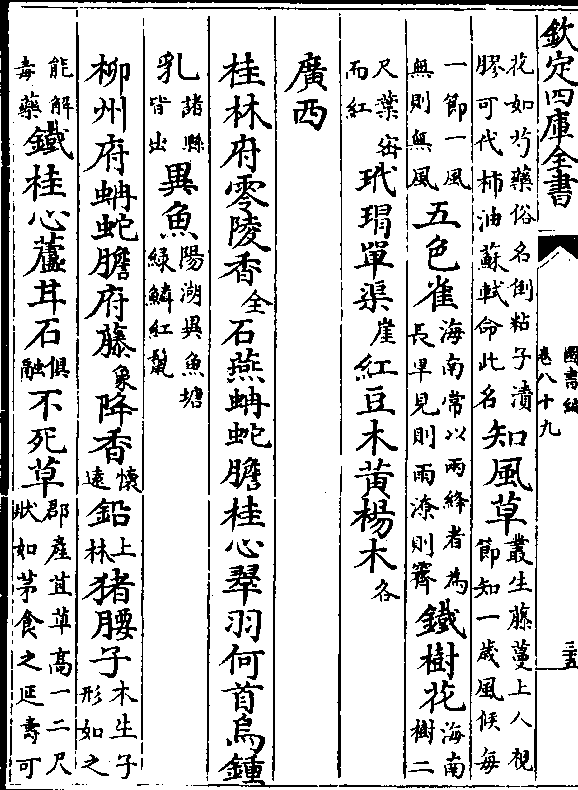 欽定四庫全書
圖書編
卷八十九
三五
花如芍藥俗名倒粘子漬膠可代柿油蘇軾命此名知風草叢生藤蔓上人視節知一歲風候每
一節一風無則無風五色雀海南常以兩絳者為長旱見則雨潦則霽鐵樹花海南樹二
尺葉密而紅玳瑁單渠崖紅豆木黃楊木各
廣西
桂林府零陵香全石燕蚺蛇膽桂心翠羽何首烏鍾
乳諸縣皆出異魚陽湖異魚塘綠鱗紅鬣
柳州府蚺蛇膽府藤象降香懷遠鉛上林猪腰子木生子形如之
能解毒藥鐵桂心蘆甘石俱融不死草郡產苴草高一二尺狀如茅食之延壽可